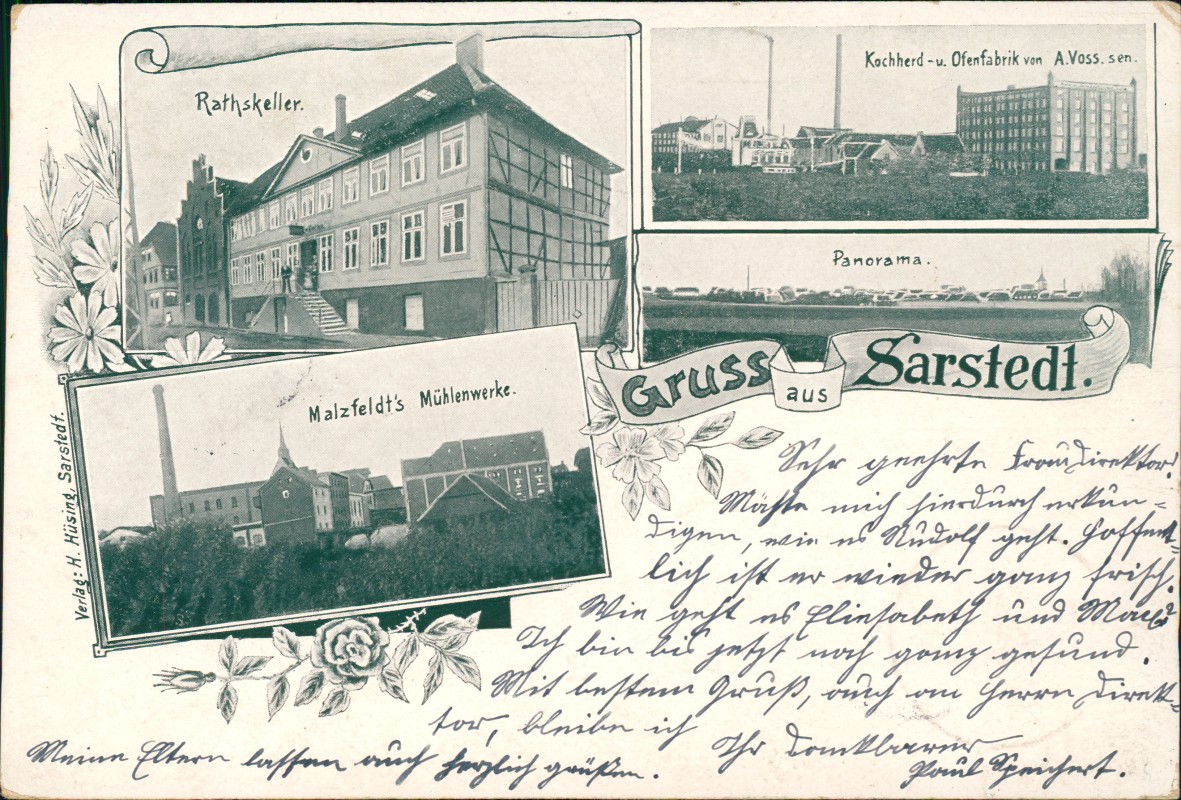 Rathskeller.
Kochherd- u. Ofenfabrik von A. Voss. sen.
Panorama.
Gruss aus Sarstedt.
Malzfeldt's Mühlenwerke.
Verlag: H. Hüsing, Sarstedt.
Sehr geehrte Frau Direktor!
Möchte mich hierdurch erkun-
digen, wie es Rudolf geht. Hoffent-
lich ist er wieder ganz frisch.
Wie geht es Elisabeth und
Ich bin bis jetzt noch ganz gesund.
Mit bestem Gruß, auch an Herrn Direk-
tor, bleibe ich
Ihr dankbarer
Paul Speichert.
Meine Eltern lassen auch herzlich grüßen.